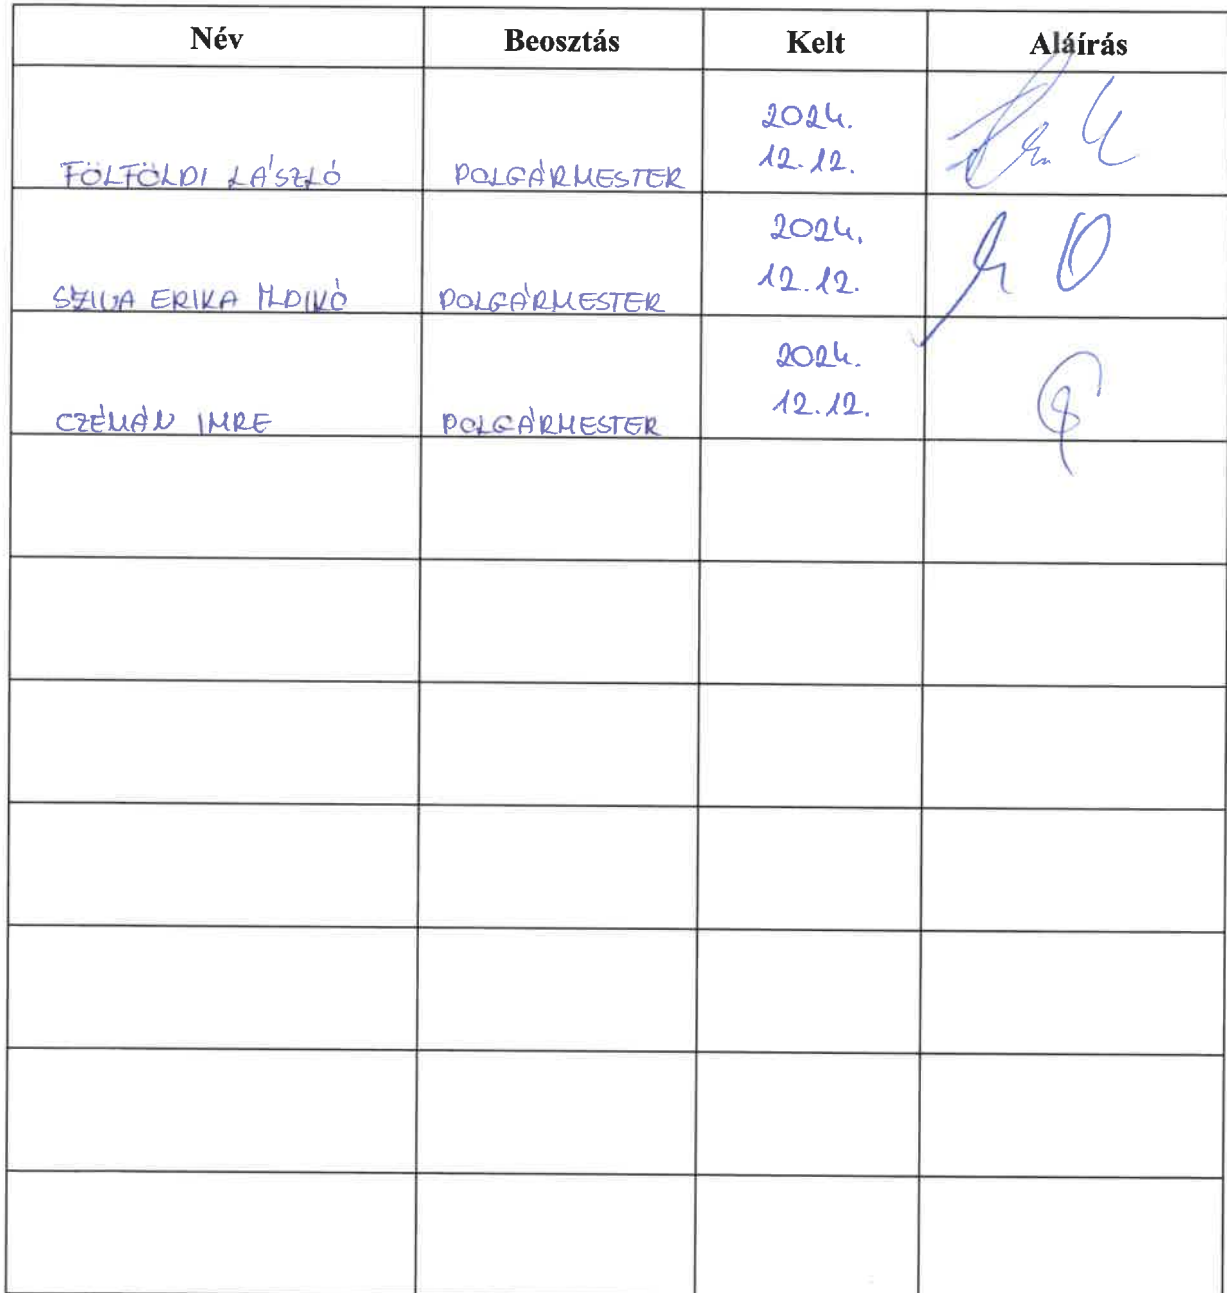 Név Beosztás Kelt Aláírás
FÖLFÖLDI LÁSZLÓ POLGÁRMESTER 2024.
12.12.
SZIVA ERIKA ILDIKÓ POLGÁRMESTER 2024.
12.12.
CZÉMÁN IMRE POLGÁRMESTER 2024.
12.12.